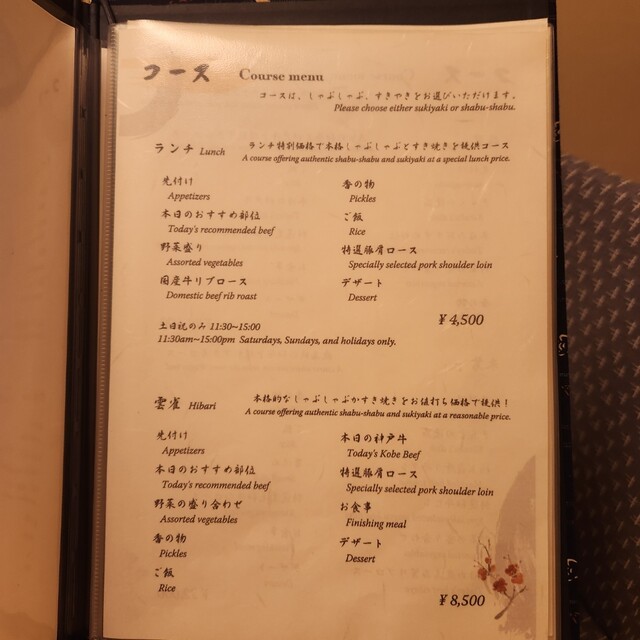 コース Course menu
コースは、しゃぶしゃぶ、すきやきをお選びいただけます。
Please choose either sukiyaki or shabu-shabu.
ランチ Lunch ランチ特別価格で本格しゃぶしゃぶとすき焼きを提供コース
A course offering authentic shabu-shabu and sukiyaki at a special lunch price.
先付け
Appetizers
本日のおすすめ部位
Today's recommended beef
野菜盛り
Assorted vegetables
国産牛リブロース
Domestic beef rib roast
香の物
Pickles
ご飯
Rice
特選豚肩ロース
Specially selected pork shoulder loin
デザート
Dessert
¥4,500
土日祝のみ 11:30~15:00
11:30am~15:00pm Saturdays, Sundays, and holidays only.
雲雀 Hibari 本格的なしゃぶしゃぶかすき焼きをお値打ち価格で提供！
A course offering authentic shabu-shabu and sukiyaki at a reasonable price.
先付け
Appetizers
本日のおすすめ部位
Today's recommended beef
野菜の盛り合わせ
Assorted vegetables
香の物
Pickles
ご飯
Rice
本日の神戸牛
Today's Kobe Beef
特選豚肩ロース
Specially selected pork shoulder loin
お食事
Finishing meal
デザート
Dessert
¥8,500